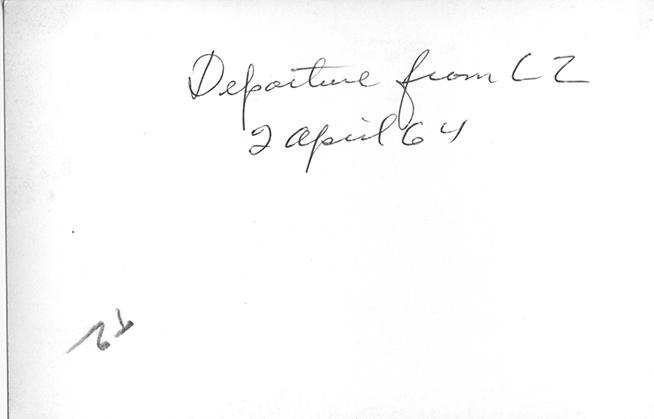 Departure from CZ
2 April 64